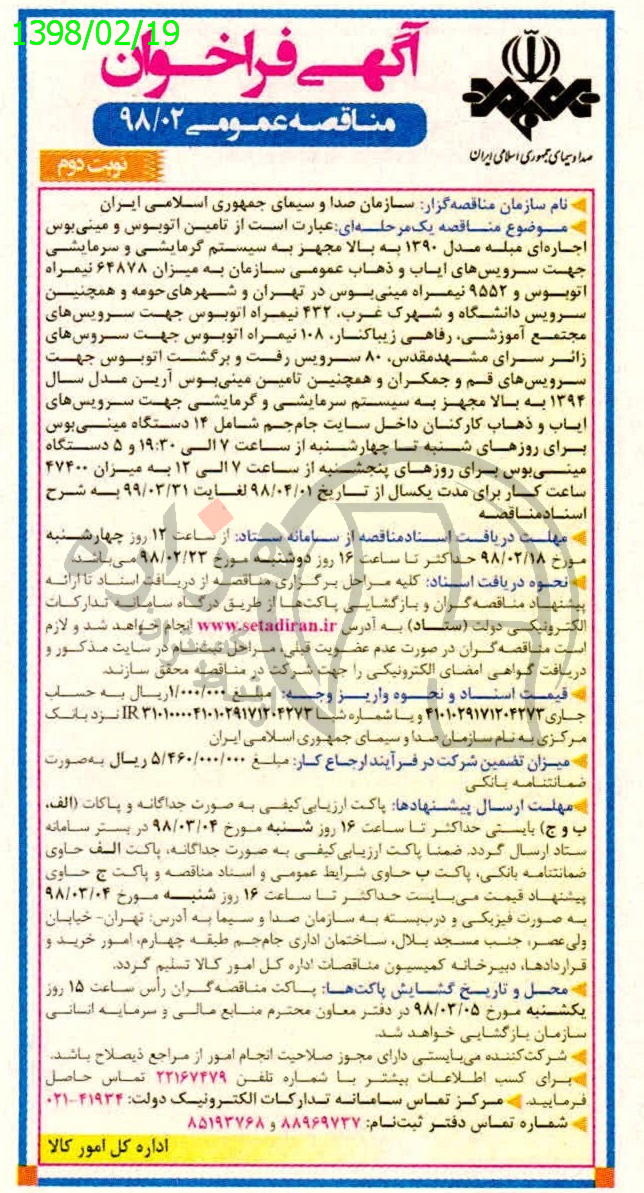 1398/02/19
آگهی فراخوان
مناقصه عمومی ۹۸/۰۲
صدا و سیمای جمهوری اسلامی ایران
نوبت دوم
نام سازمان مناقصه‌گزار: سازمان صدا و سیمای جمهوری اسلامی ایران
موضوع مناقصه یک‌مرحله‌ای: عبارت است از تامین اتوبوس و مینی‌بوس
اجاره‌ای مبله مدل ۱۳۹۰ به بالا مجهز به سیستم گرمایشی و سرمایشی
جهت سرویس‌های ایاب و ذهاب عمومی سازمان به میزان ۶۴۸۷۸ نیمراه
اتوبوس و ۹۵۵۲ نیمراه مینی‌بوس در تهران و شهرهای‌حومه و همچنین
سرویس دانشگاه و شهرک غرب، ۴۳۲ نیمراه اتوبوس جهت سرویس‌های
مجتمع آموزشی، رفاهی زیباکنار، ۱۰۸ نیمراه اتوبوس جهت سروس‌های
زائر سرای مشهدمقدس، ۸۰ سرویس رفت و برگشت اتوبوس جهت
سرویس‌های قم و جمکران و همچنین تامین مینی‌بوس آرین مدل سال
۱۳۹۴ به بالا مجهز به سیستم سرمایشی و گرمایشی جهت سرویس‌های
ایاب و ذهاب کارکنان داخل سایت جام‌جم شامل ۱۴ دستگاه مینی‌بوس
برای روزهای شنبه تا چهارشنبه از ساعت ۷ الی ۱۹:۳۰ و ۵ دستگاه
مینی‌بوس برای روزهای پنجشنبه از ساعت ۷ الی ۱۲ به میزان ۴۷۴۰۰
ساعت کار برای مدت یکسال از تاریخ ۹۸/۰۴/۰۱ لغایت ۹۹/۰۳/۳۱ به شرح
اسنادمناقصه
مهلت دریافت اسنادمناقصه از سامانه ستاد: از ساعت ۱۲ روز چهارشنبه
مورخ ۹۸/۰۲/۱۸ حداکثر تا ساعت ۱۶ روز دوشنبه مورخ ۹۸/۰۲/۲۳ می‌باشد.
نحوه دریافت اسناد: کلیه مراحل برگزاری مناقصه از دریافت اسناد تا ارائه
پیشنهاد مناقصه‌گران و بازگشایی پاکت‌ها از طریق درگاه سامانه تدارکات
الکترونیکی دولت (ستاد) به آدرس www.setadiran.ir انجام خواهد شد و لازم
است مناقصه‌گران در صورت عدم عضویت قبلی، مراحل ثبت‌نام در سایت مذکور و
دریافت گواهی امضای الکترونیکی را جهت شرکت در مناقصه محقق سازند.
قیمت اسناد و نحوه واریز وجه: مبلغ ۱/۰۰۰/۰۰۰ریال به حساب
جاری ۴۱۰۱۰۲۹۱۷۱۲۰۴۲۷۳ و یا شماره شبا IR ۳۱۰۱۰۰۰۰۴۱۰۱۰۲۹۱۷۱۲۰۴۲۷۳ نزد بانک
مرکزی به نام سازمان صدا و سیمای جمهوری اسلامی ایران
میزان تضمین شرکت در فرآیند ارجاع کار: مبلغ ۵/۴۶۰/۰۰۰/۰۰۰ ریال به‌صورت
ضمانتنامه بانکی
مهلت ارسال پیشنهادها: پاکت ارزیابی‌کیفی به صورت جداگانه و پاکات (الف،
ب و ج) بایستی حداکثر تا ساعت ۱۶ روز شنبه مورخ ۹۸/۰۳/۰۴ در بستر سامانه
ستاد ارسال گردد. ضمنا پاکت ارزیابی‌کیفی به صورت جداگانه، پاکت الف حاوی
ضمانتنامه بانکی، پاکت ب حاوی شرایط عمومی و اسناد مناقصه و پاکت ج حاوی
پیشنهاد قیمت می‌بایست حداکثر تا ساعت ۱۶ روز شنبه مورخ ۹۸/۰۳/۰۴
به صورت فیزیکی و درب‌بسته به سازمان صدا و سیما به آدرس: تهران- خیابان
ولی‌عصر، جنب مسجد بلال، ساختمان اداری جام‌جم طبقه چهارم، امور خرید و
قراردادها، دبیرخانه کمیسیون مناقصات اداره کل امور کالا تسلیم گردد.
محل و تاریخ گشایش پاکت‌ها: پاکت مناقصه‌گران رأس ساعت ۱۵ روز
یکشنبه مورخ ۹۸/۰۳/۰۵ در دفتر معاون محترم منابع مالی و سرمایه انسانی
سازمان بازگشایی خواهد شد.
شرکت‌کننده می‌بایستی دارای مجوز صلاحیت انجام امور از مراجع ذیصلاح باشد.
برای کسب اطلاعات بیشتر با شماره تلفن ۲۲۱۶۷۴۷۹ تماس حاصل
فرمایید. مرکز تماس سامانه تدارکات الکترونیک دولت: ۴۱۹۳۴-۰۲۱
شماره تماس دفتر ثبت‌نام: ۸۸۹۶۹۷۳۷ و ۸۵۱۹۳۷۶۸
اداره کل امور کالا
هزاره